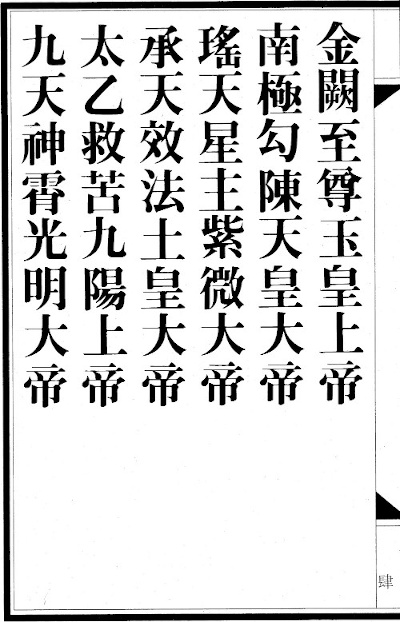 金闕至尊玉皇上帝
南極勾陳天皇大帝
瑤天星主紫微大帝
承天效法土皇大帝
太乙救苦九陽上帝
九天神霄光明大帝
肆